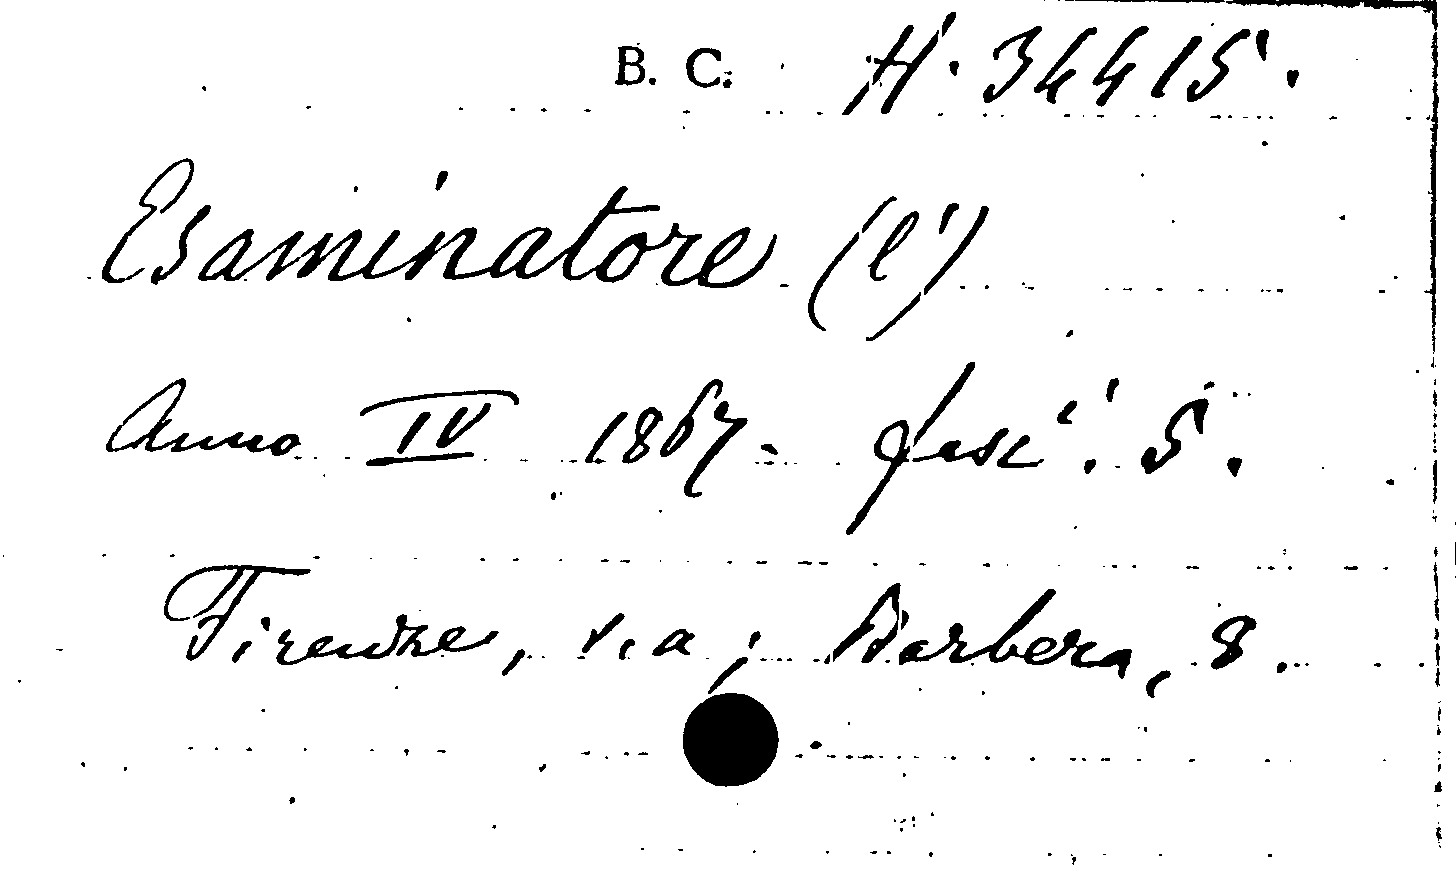 B. C. H. 34415.
Esaminatore (l')
Anno IV 1867. fasc. 5.
Firenze, s.a; Barbera, 8.